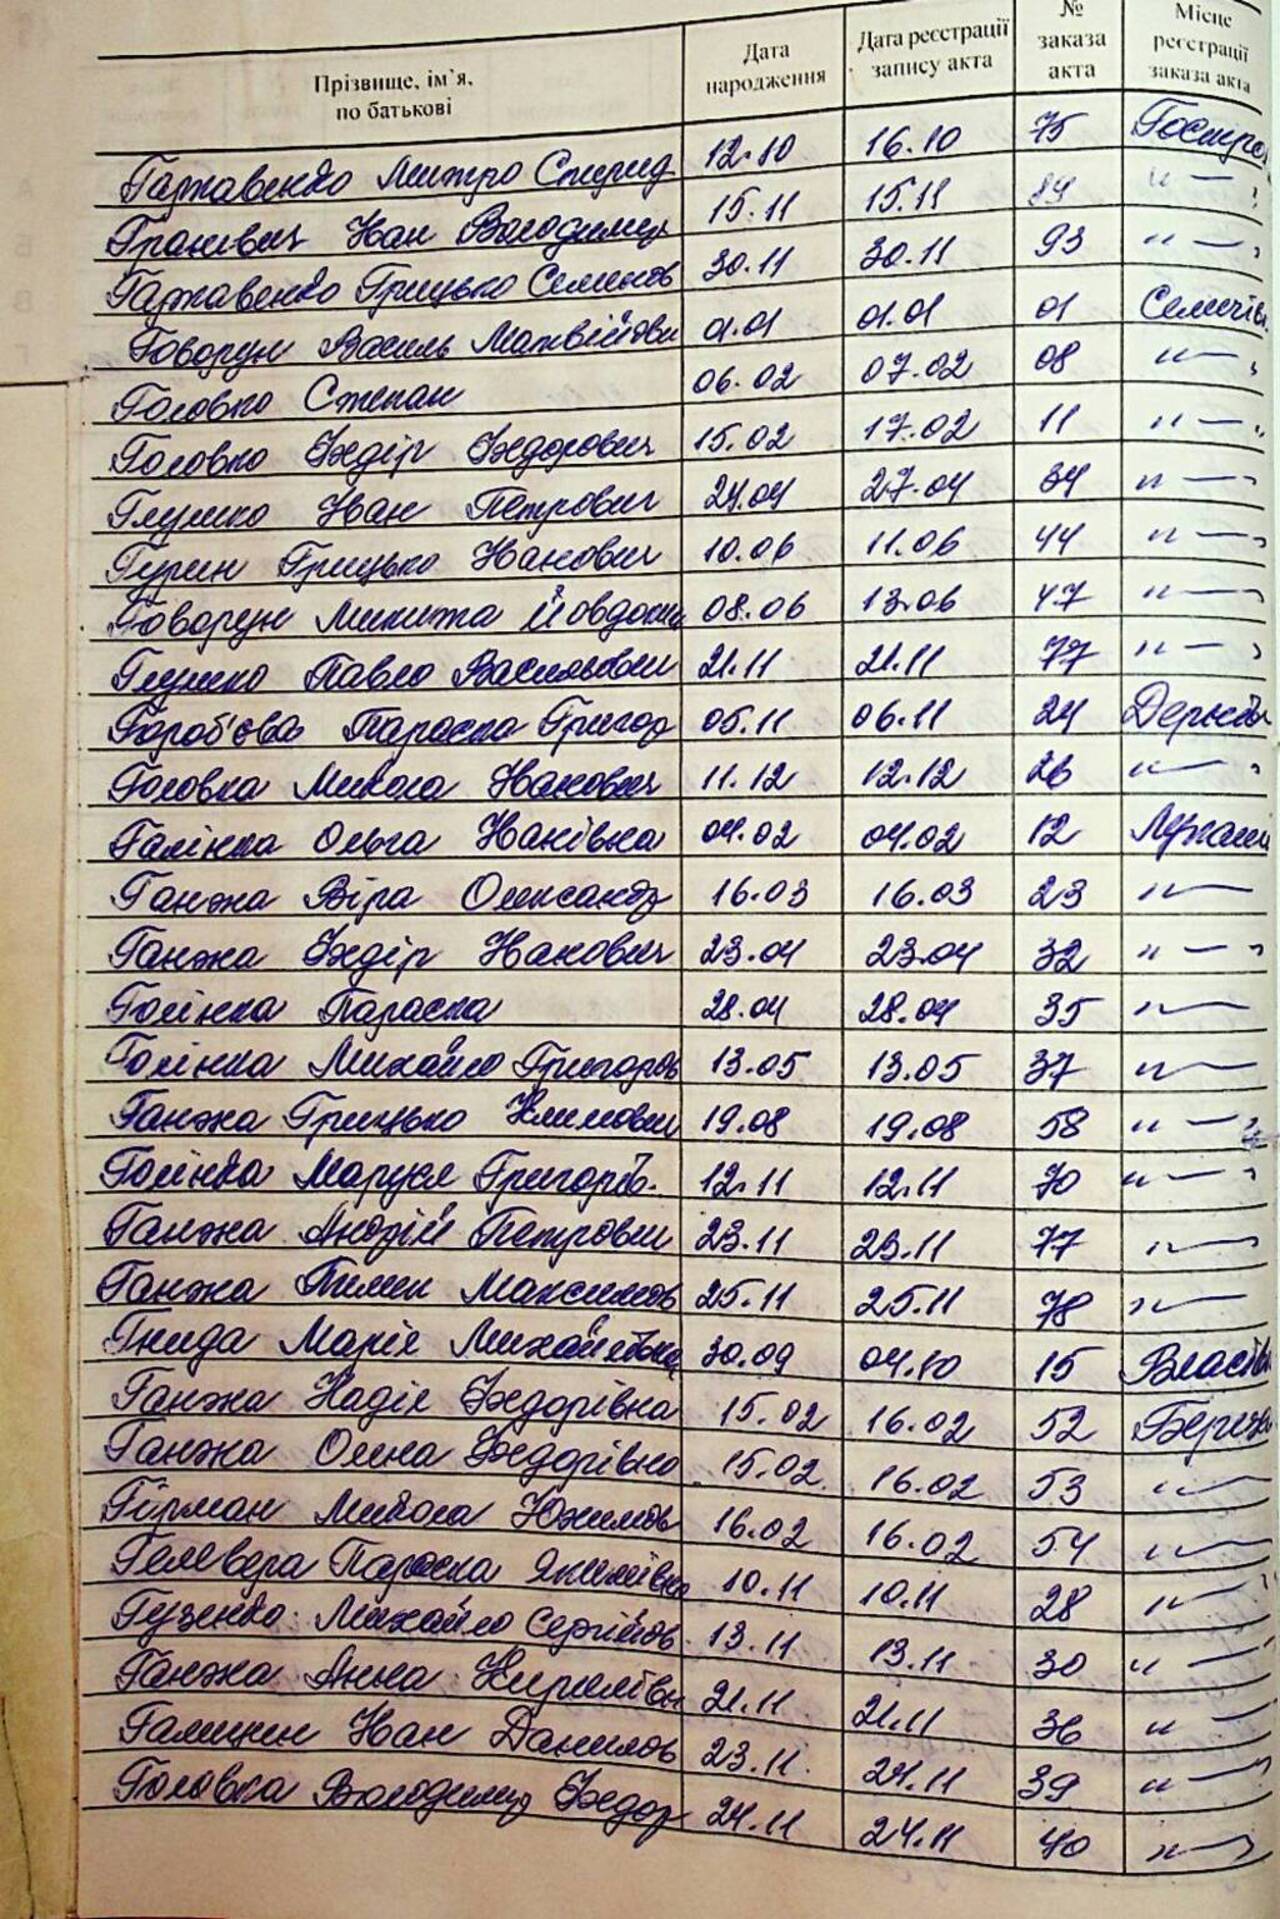 Прізвище, ім'я, по батькові Дата народження Дата реєстрації запису акта № заказа акта Місце реєстрації заказа акта
Гаржавенко Митро Спирид 12.10 16.10 75
Граневич Іван Володимир 15.11 15.11 89 " — "
Гаржавенко Грицько Семенов 30.11 30.11 93 " — "
Говорун Василь Матвійови 01.01 01.01 01 Семенів
Головко Степан 06.02 07.02 08 " — "
Головко Федір Федорович 15.02 17.02 11 " — "
Глушко Іван Петрович 24.04 27.04 34 " — "
Гурин Грицько Іванович 10.06 11.06 44 " — "
Говорун Микита Йовдоким 08.06 13.06 47 " — "
Глушко Павло Васильович 21.11 21.11 77 " — "
Гороб'єва Параска Григор 05.11 06.11 24
Головка Микола Іванович 11.12 12.12 26 " — "
Галінка Ольга Іванівна 04.02 04.02 12
Ганжа Віра Олександр 16.03 16.03 23 " —
Ганжа Федір Іванович 23.04 23.04 32 " — "
Голінка Параска 28.04 28.04 35 " —
Голінка Михайло Григоров 13.05 13.05 37 " —
Ганжа Грицько Климович 19.08 19.08 58 " — "
Голінка Маруся Григорів. 12.11 12.11 70 " — "
Ганжа Андрій Петрович 23.11 23.11 77 " — "
Ганжа Пимен Максимов 25.11 25.11 78 " — "
Гнида Марія Михайлівна 30.09 04.10 15 Власів
Ганжа Надія Федорівна 15.02 16.02 52
Ганжа Олена Федорівна 15.02 16.02 53 " —
Гірман Микола Юхимов 16.02 16.02 54 " —
Гелевера Параска Якимівна 10.11 10.11 28 " — "
Гузенко Михайло Сергійов 13.11 13.11 30 " —
Ганжа Анна Кирилівн 21.11 21.11 36 " —
Галицин Іван Данилов 23.11 24.11 39 " —
Головка Володимир Федор 24.11 24.11 40 " — "